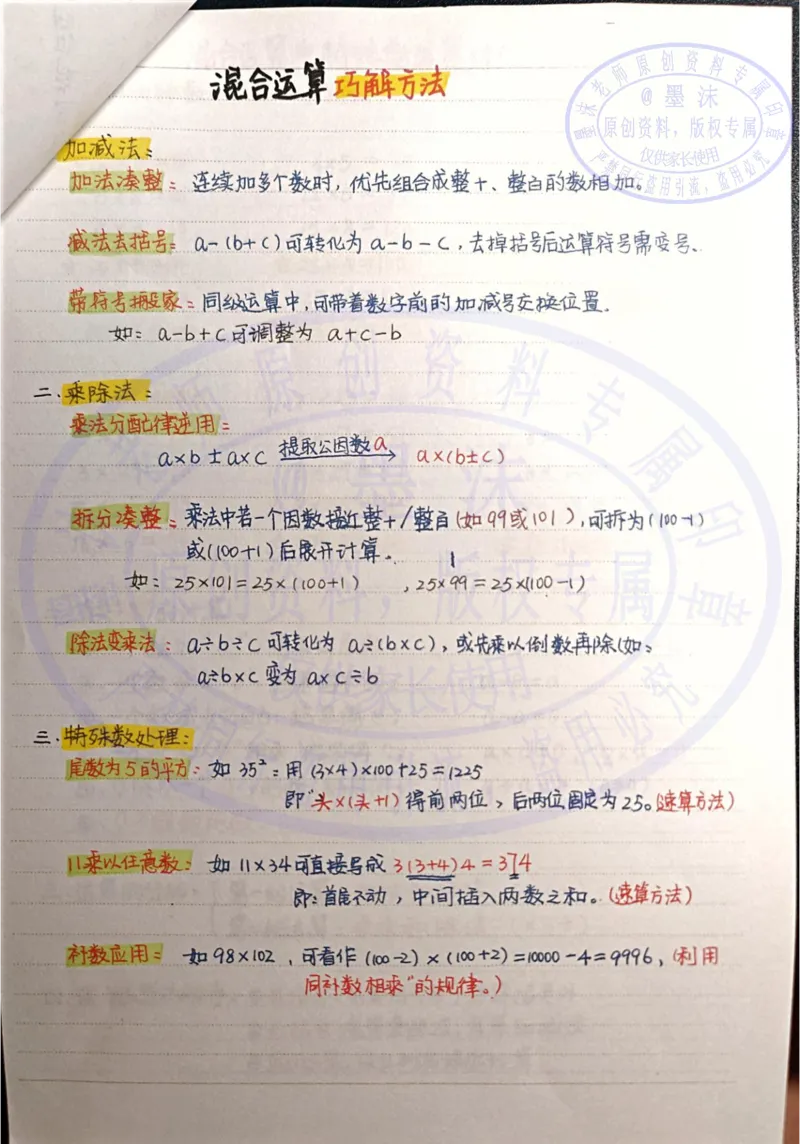 混合运算巧解方法
墨沫老师原创资料专属印章
@墨沫
原创资料，版权专属
仅供家长使用
盗用引流，盗用必究
加减法：
加法凑整：连续加多个数时，优先组合成整十、整百的数相加。
减法去括号：a-(b+c)可转化为a-b-c，去掉括号后运算符号需变号、
带符号搬家：同级运算中，可带着数字前的加减号交换位置.
如：a-b+c可调整为 a+c-b
二、乘除法：
乘法分配律逆用：
a×b±a×c 提取公因数a a×(b±c)
拆分凑整：乘法中若一个因数接近整十/整百(如99或101)，可拆为(100-1)
或(100+1)后展开计算。
如：25×101=25×(100+1) ，25×99=25×(100-1)
除法变乘法：a÷b÷c可转化为 a÷(b×c)，或先乘以倒数再除(如：
a÷b×c 变为 a×c÷b
三、特殊数处理：
尾数为5的平方：如 35²：用(3×4)×100+25=1225
即"头×(头+1)得前两位，后两位固定为25。(速算方法)
11乘以任意数：如11×34可直接写成3(3+4)4=374
即：首尾不动，中间插入两数之和。(速算方法)
补数应用：如98×102，可看作(100-2)×(100+2)=10000-4=9996，(利用
同补数相乘"的规律。)
原创资料专属印章
@墨沫
原创资料，版权专属
仅供家长使用
盗用必究